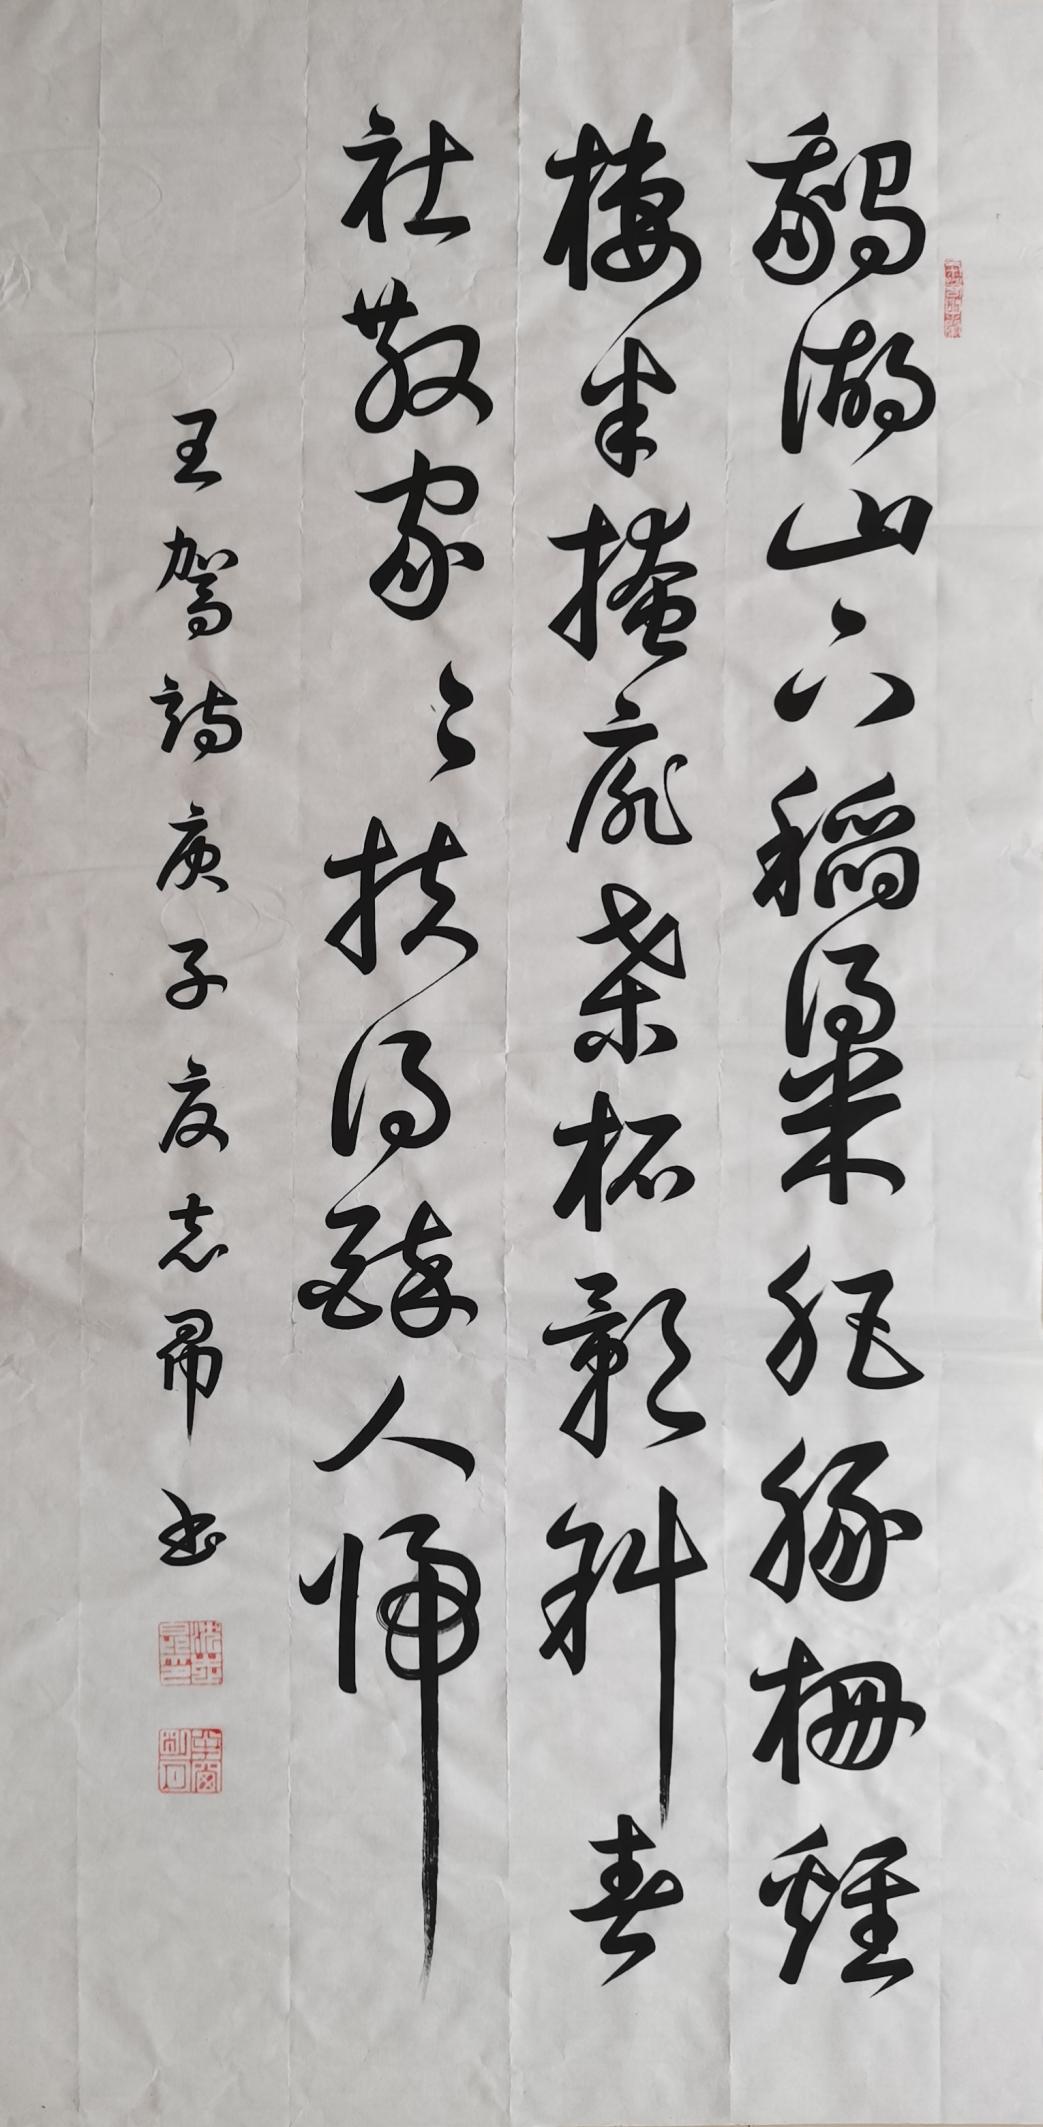 鵝湖山下稻粱肥豚柵雞
棲半掩扉桑柘影斜春
社散家々扶得醉人歸
王駕詩庚子夏志昂书